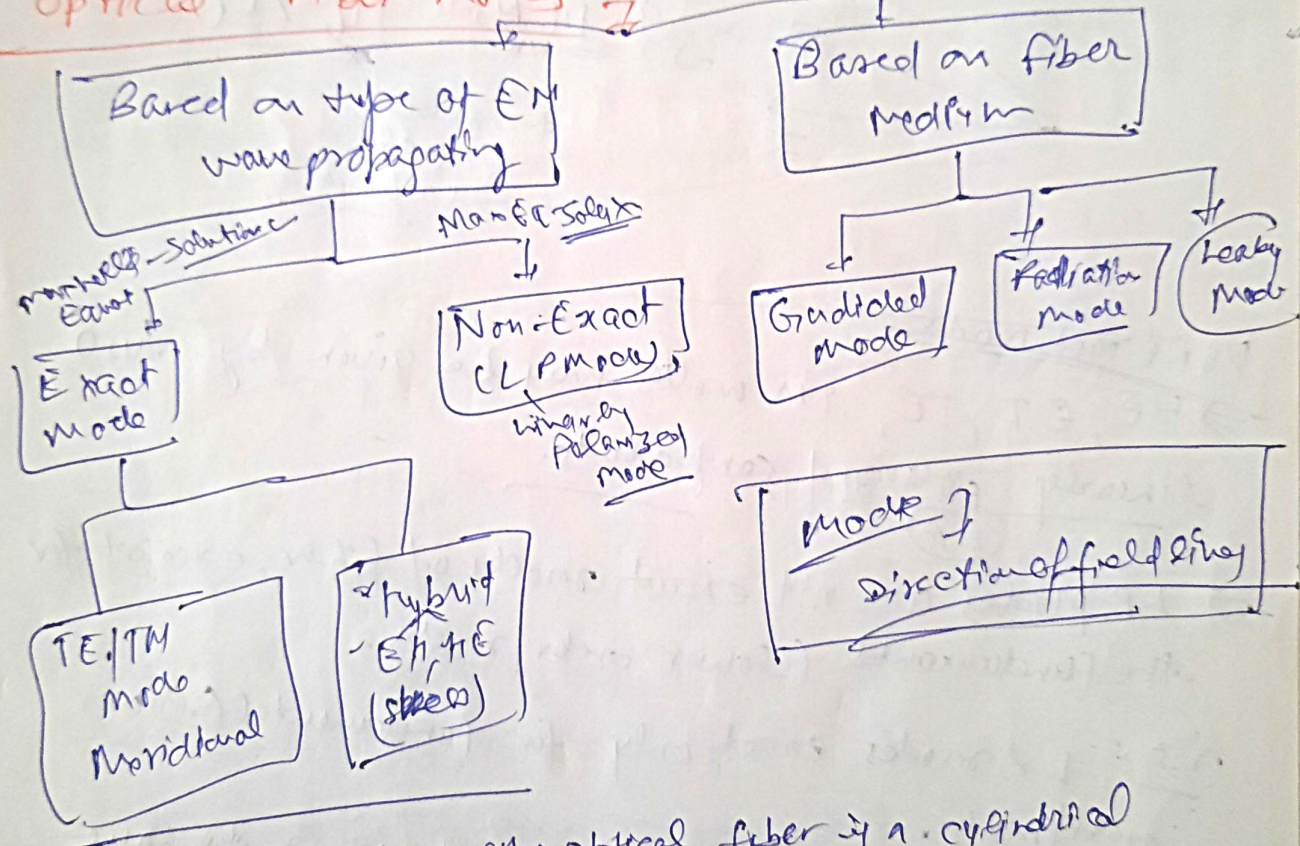 optical fiber
Based on type of EM
wave propagating
Based on fiber
medium
Maxwell's - Solution
Equat
Exact
mode
Non-Exact
(LP Mode)
Linearly
Polarized
mode
Guided
mode
Radiation
mode
Leaky
Mode
TE/TM
mode
Meridional
Hybrid
- EH, HE
(skew)
Mode ⇒
Direction of field lines
optical fiber is a cylindrical